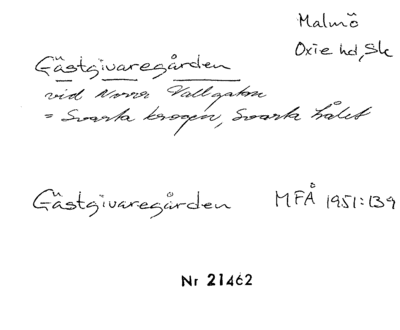 Malmö
Oxie hd, Sk
Gästgivaregården
vid Norra Vallgatan
= Svarta krogen, Svarta hålet
Gästgivaregården MFÅ 1951:139
Nr 21462